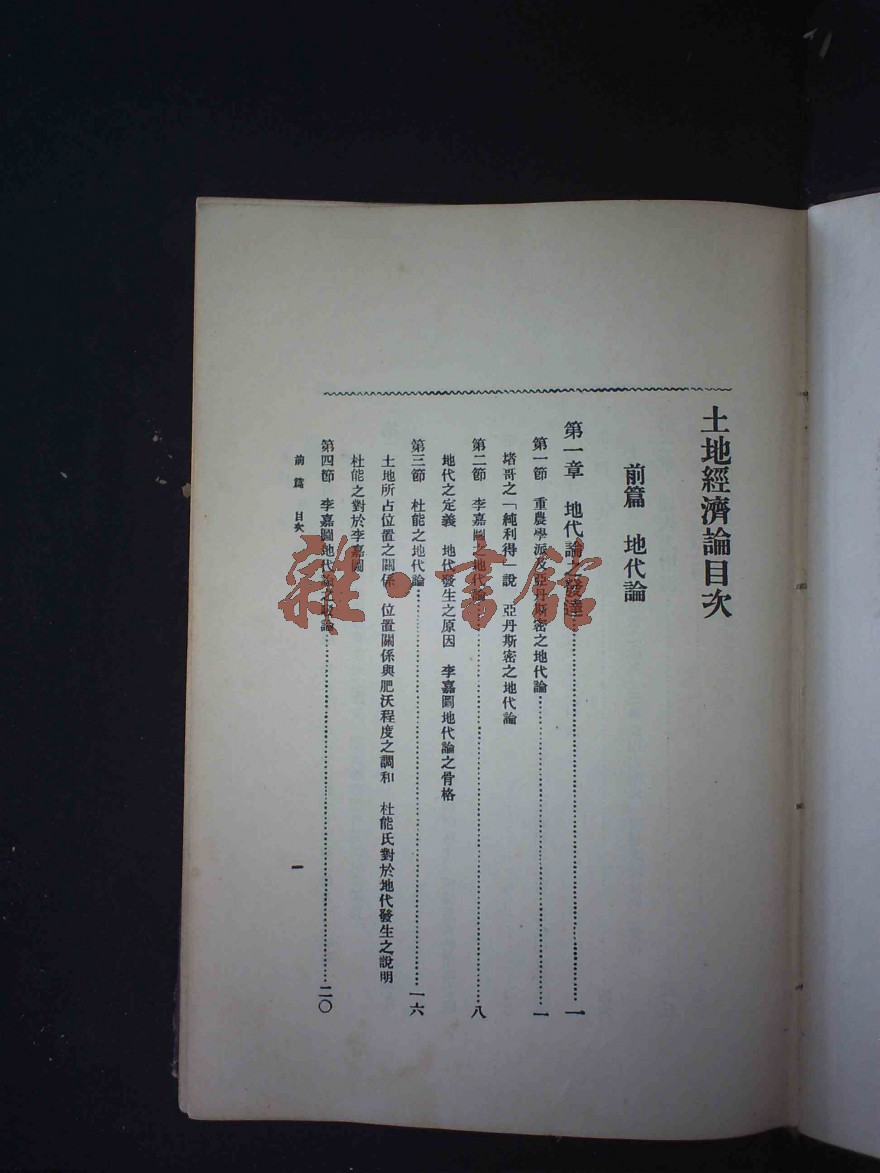 土地經濟論目次
前篇　地代論
第一章　地代論之發達……一
第一節　重農學派及亞丹斯密之地代論……一
堵哥之「純利得」說　亞丹斯密之地代論
第二節　李嘉圖之地代論……八
地代之定義　地代發生之原因　李嘉圖地代論之骨格
第三節　杜能之地代論……一六
土地所占位置之關係　位置關係與肥沃程度之調和　杜能氏對於地代發生之說明
杜能之對於李嘉圖
第四節　李嘉圖地代論之　論……二〇
前篇　目次
一
雜·書館